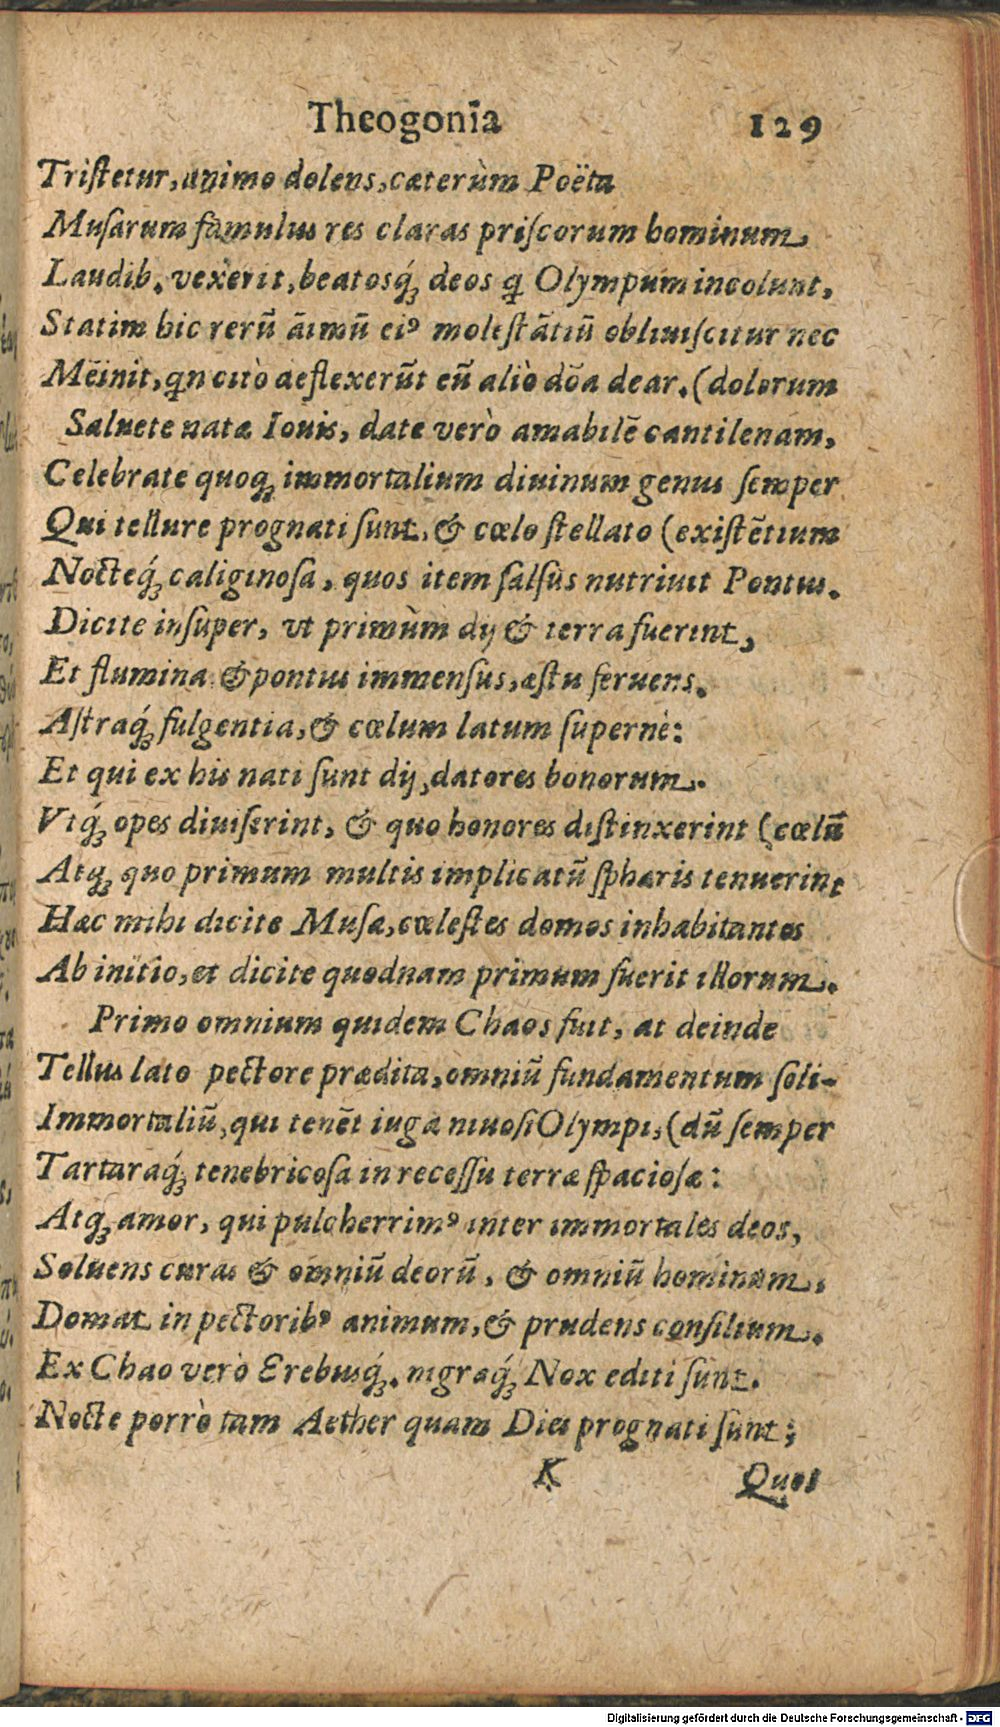 Theogonia 129
Tristetur, animo dolens, cæterùm Poëta
Musarum famulus res claras priscorum hominum,
Laudib. vexerit, beatosq́; deos q̃ Olympum incolunt,
Statim hic rerũ ãimũ eiꝰ molestãtiũ obliuiscitur nec
Mẽinit, qñ citò deflexerũt eũ aliò dõa dear. (dolorum
Saluete natæ Iouis, date verò amabilẽ cantilenam,
Celebrate quoq; immortalium diuinum genus semper
Qui tellure prognati sunt, & cœlo stellato (existẽtium
Nocteq́; caliginosa, quos item salsus nutriuit Pontus.
Dicite insuper, vt primùm dij & terra fuerint,
Et flumina & pontus immensus, æstu feruens.
Astraq́; fulgentia, & cœlum latum supernè:
Et qui ex his nati sunt dij, datores bonorum.
Vtq́; opes diuiserint, & quo honores distinxerint (cœlũ
Atq; quo primum multis implicatũ sphæris tenuerint
Hæc mihi dicite Musæ, cœlestes domos inhabitantes
Ab initio, et dicite quodnam primum fuerit illorum.
Primo omnium quidem Chaos fuit, at deinde
Tellus lato pectore prædita, omniũ fundamentum soli-
Immortaliũ, qui tenẽt iuga niuosi Olympi, (dũ semper
Tartaraq́; tenebricosa in recessu terræ spaciosæ:
Atq; amor, qui pulcherrimꝰ inter immortales deos,
Soluens curas & omniũ deorũ, & omniũ hominum,
Domat in pectoribꝰ animum, & prudens consilium.
Ex Chao verò Erebusq́;. nigraq́; Nox editi sunt.
Nocte porrò tam Aether quam Dies prognati sunt;
K Quos
Digitalisierung gefördert durch die Deutsche Forschungsgemeinschaft - DFG